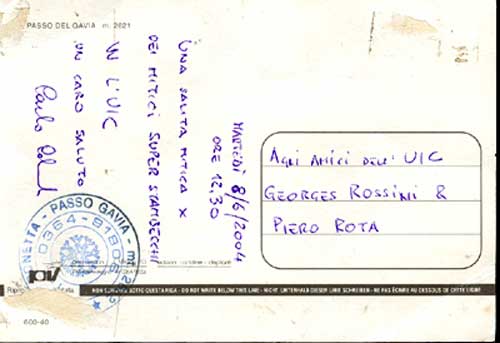 PASSO DEL GAVIA m. 2621
MARTEDÌ 8/6/2004
ORE 12,30
UNA SALITA MITICA X
DEI MITICI SUPER STAMBECCHI
IN L'UIC
UN CARO SALUTO
Carlo
AGLI AMICI DELL'UIC
GEORGES ROSSINI &
PIERO ROTA
PASSO GAVIA - mt. 26
0364-91806
NON SCRIVERE SOTTO QUESTA RIGA - DO NOT WRITE BELOW THIS LINE - NICHT UNTERHALB DIESER LINIE SCHREIBEN - NE PAS ÉCRIRE AU DESSOUS DE CETTE LIGNE
600-40